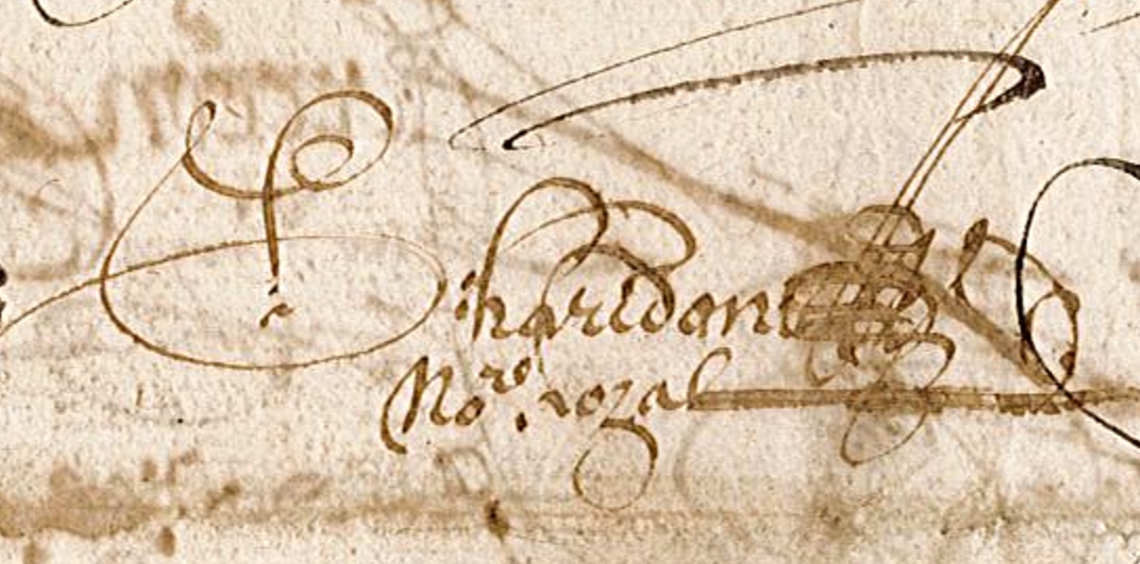 Charidon
No.re royal